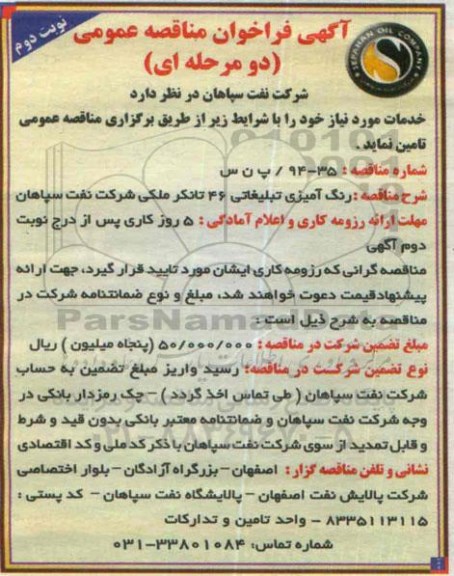 نوبت دوم
SEPAHAN OIL COMPANY
آگهی فراخوان مناقصه عمومی
(دو مرحله ای)
شرکت نفت سپاهان در نظر دارد
خدمات مورد نیاز خود را با شرایط زیر از طریق برگزاری مناقصه عمومی
تامین نماید.
شماره مناقصه : ۳۵-۹۴ / پ ن س
شرح مناقصه : رنگ آمیزی تبلیغاتی ۴۶ تانکر ملکی شرکت نفت سپاهان
مهلت ارائه رزومه کاری و اعلام آمادگی : ۵ روز کاری پس از درج نوبت
دوم آگهی
مناقصه گرانی که رزومه کاری ایشان مورد تایید قرار گیرد، جهت ارائه
پیشنهادقیمت دعوت خواهند شد، مبلغ و نوع ضمانتنامه شرکت در
مناقصه به شرح ذیل است :
مبلغ تضمین شرکت در مناقصه : ۵۰/۰۰۰/۰۰۰ (پنجاه میلیون) ریال
نوع تضمین شرکت در مناقصه: رسید واریز مبلغ تضمین به حساب
شرکت نفت سپاهان ( طی تماس اخذ گردد ) - چک رمزدار بانکی در
وجه شرکت نفت سپاهان و ضمانتنامه معتبر بانکی بدون قید و شرط
و قابل تمدید از سوی شرکت نفت سپاهان با ذکر کد ملی و کد اقتصادی
نشانی و تلفن مناقصه گزار : اصفهان - بزرگراه آزادگان - بلوار اختصاصی
شرکت پالایش نفت اصفهان - پالایشگاه نفت سپاهان - کد پستی :
۸۳۳۵۱۱۳۱۱۵ - واحد تامین و تدارکات
شماره تماس: ۳۳۸۰۱۰۸۴-۰۳۱
ParsNamadData